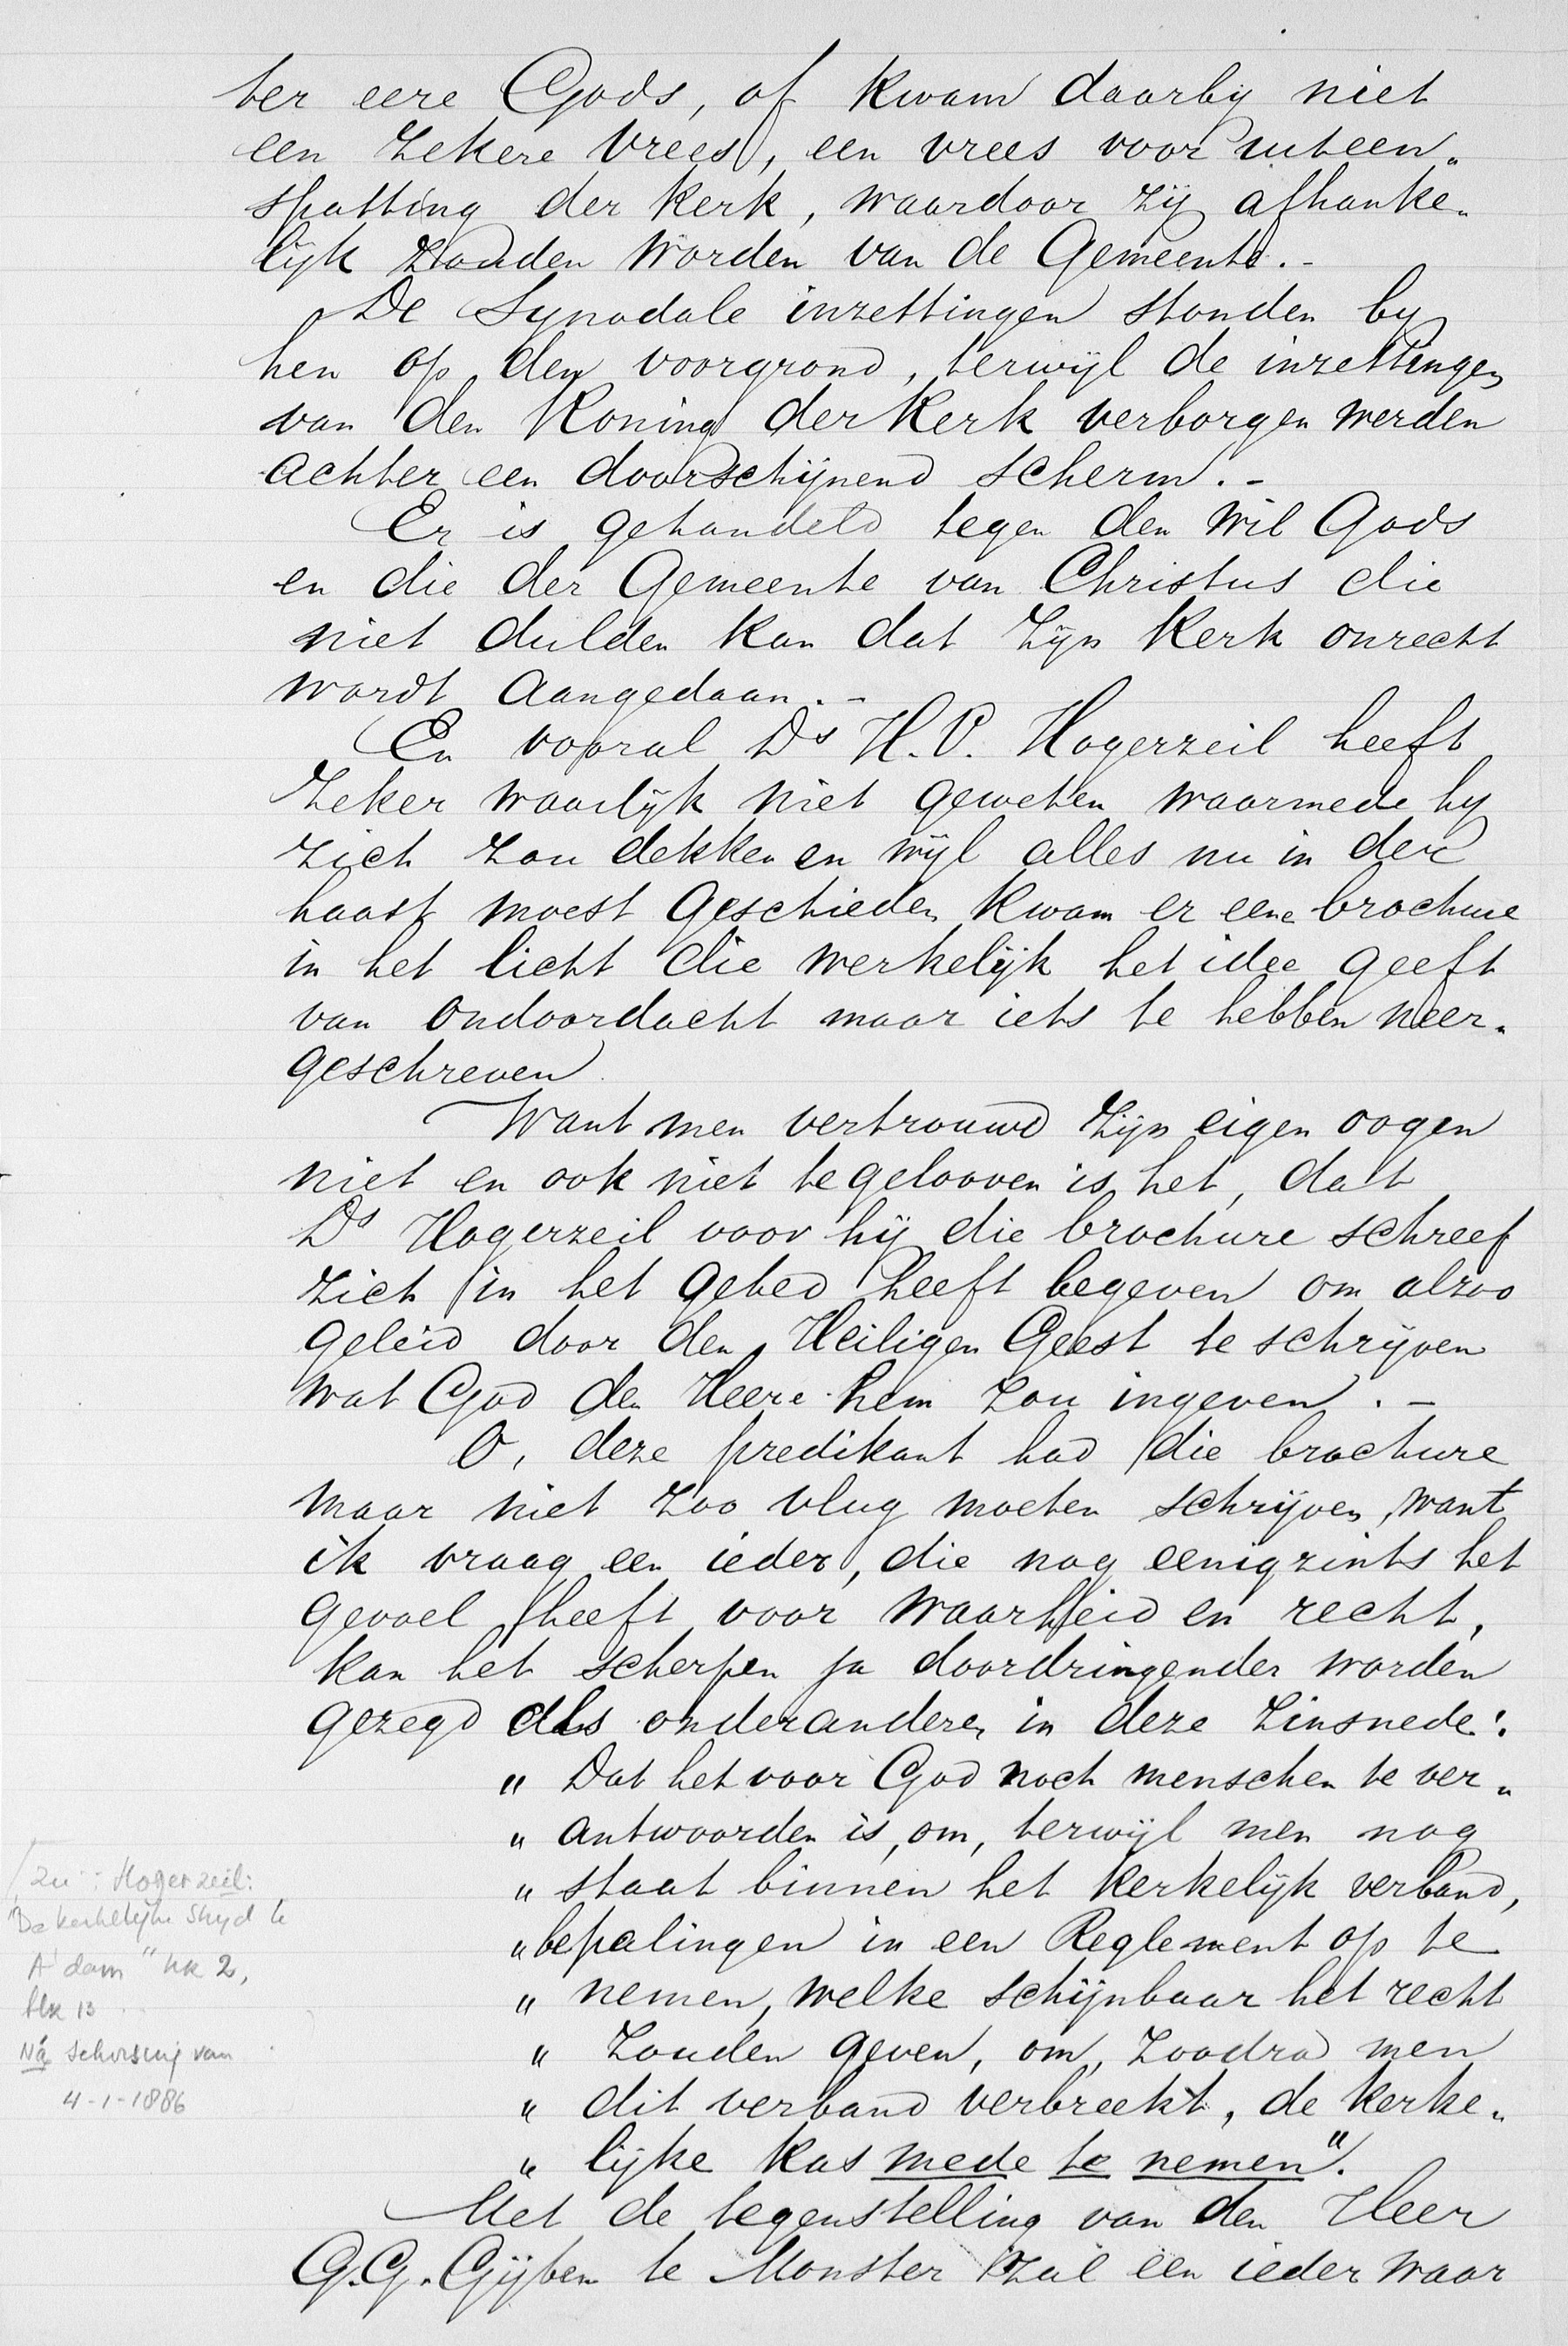 ter eere Gods, of kwam daarby niet
een zekere vrees, een vrees voor uiteen„
spatting der kerk, waardoor zij afhanke„
lijk zouden worden van de Gemeente.-
De Synodale inzettingen stonden by
hen op den voorgrond, terwijl de inzettingen
van den Koning der Kerk verborgen werden
achter een doorschijnend scherm.-
Er is gehandeld tegen den wil Gods
en die der Gemeente van Christus die
niet dulden kan dat zijn Kerk onrecht
wordt aangedaan.-
En vooral Ds H.V. Hogerzeil heeft
zeker waarlijk niet geweten waarmede hy
zich zou dekken en wijl alles nu in der
haast moest geschieden kwam er eene brochure
in het licht die werkelijk het idee geeft
van ondoordacht maar iets te hebben neer„
geschreven
Want men vertrouwd zijn eigen oogen
niet en ook niet te gelooven is het, dat
Ds Hogerzeil voor hij die brochure schreef
zich in het gebed heeft begeven om alzoo
geleid door den Heiligen Geest te schrijven
wat God de Heere hem zou ingeven.-
O, deze predikant had die brochure
maar niet zoo vlug moeten schrijven, want
ik vraag een ieder, die nog eenigzints het
gevoel heeft voor waarheid en recht,
kan het scherper ja doordringender worden
gezegd als onderanderen in deze zinsnede:
„ Dat het voor God noch menschen te ver„
„ antwoorden is, om, terwijl men nog
„ staat binnen het kerkelijk verband,
„ bepalingen in een Reglement op te
„ nemen, welke schijnbaar het recht
„ zouden geven, om, zoodra men
„ dit verband verbreekt, de kerke„
„ lijke kas mede te nemen".
Met de tegenstelling van den Heer
G.G. Gijben te Monster zal een ieder waar
zie: Hogerzeil:
"De kerkelijke Strijd te
A'dam" nr 2,
blz 13
Ná schorsing van
4-1-1886